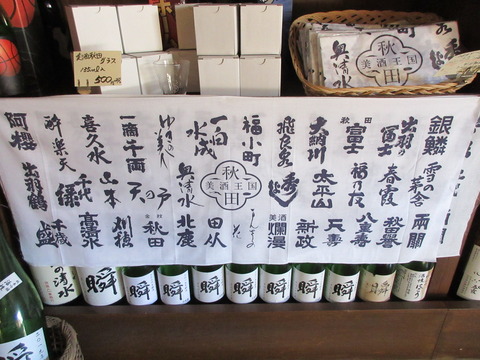 美酒秋田
グラス
135ml入
500
秋田
美酒王国
奥清水
銀鱗
雪の茅舎
両関
出羽の冨士
春霞
秋田誉
秋田富士
福乃友
八重寿
大納川
太平山
天寿
新政
飛良泉
秀よし
美酒爛漫
福小町
秋田
美酒王国
まんさくの花
一白水成
田从
ゆきの美人
奥清水
北鹿
一滴千両
天の戸
金紋秋田
刈穂
喜久水
山本
千代緑
高清水
酔楽天
千歳盛
阿櫻
出羽鶴
の清水
瞬
瞬
瞬
瞬
瞬
瞬
瞬
瞬